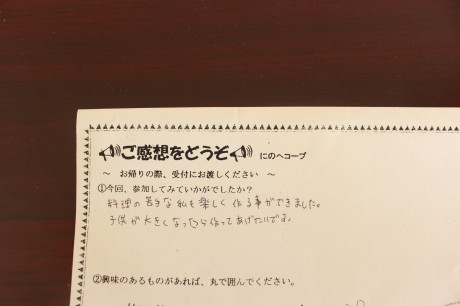 ご感想をどうぞ にのへコープ
～ お帰りの際、受付にお渡しください ～
①今回、参加してみていかがでしたか？
料理の苦手な私も楽しく作る事ができました。
子供が大きくなったら作ってあげたいです。
②興味のあるものがあれば、丸で囲んでください。